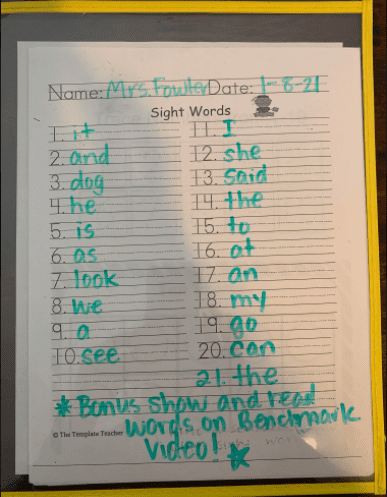 Name: Mrs. Fowler Date: 1-8-21
Sight Words
1. it
2. and
3. dog
4. he
5. is
6. as
7. look
8. we
9. a
10. see
11. I
12. she
13. said
14. the
15. to
16. at
17. an
18. my
19. go
20. can
21. the
* Bonus show and read
words on Benchmark
Video!
© The Template Teacher